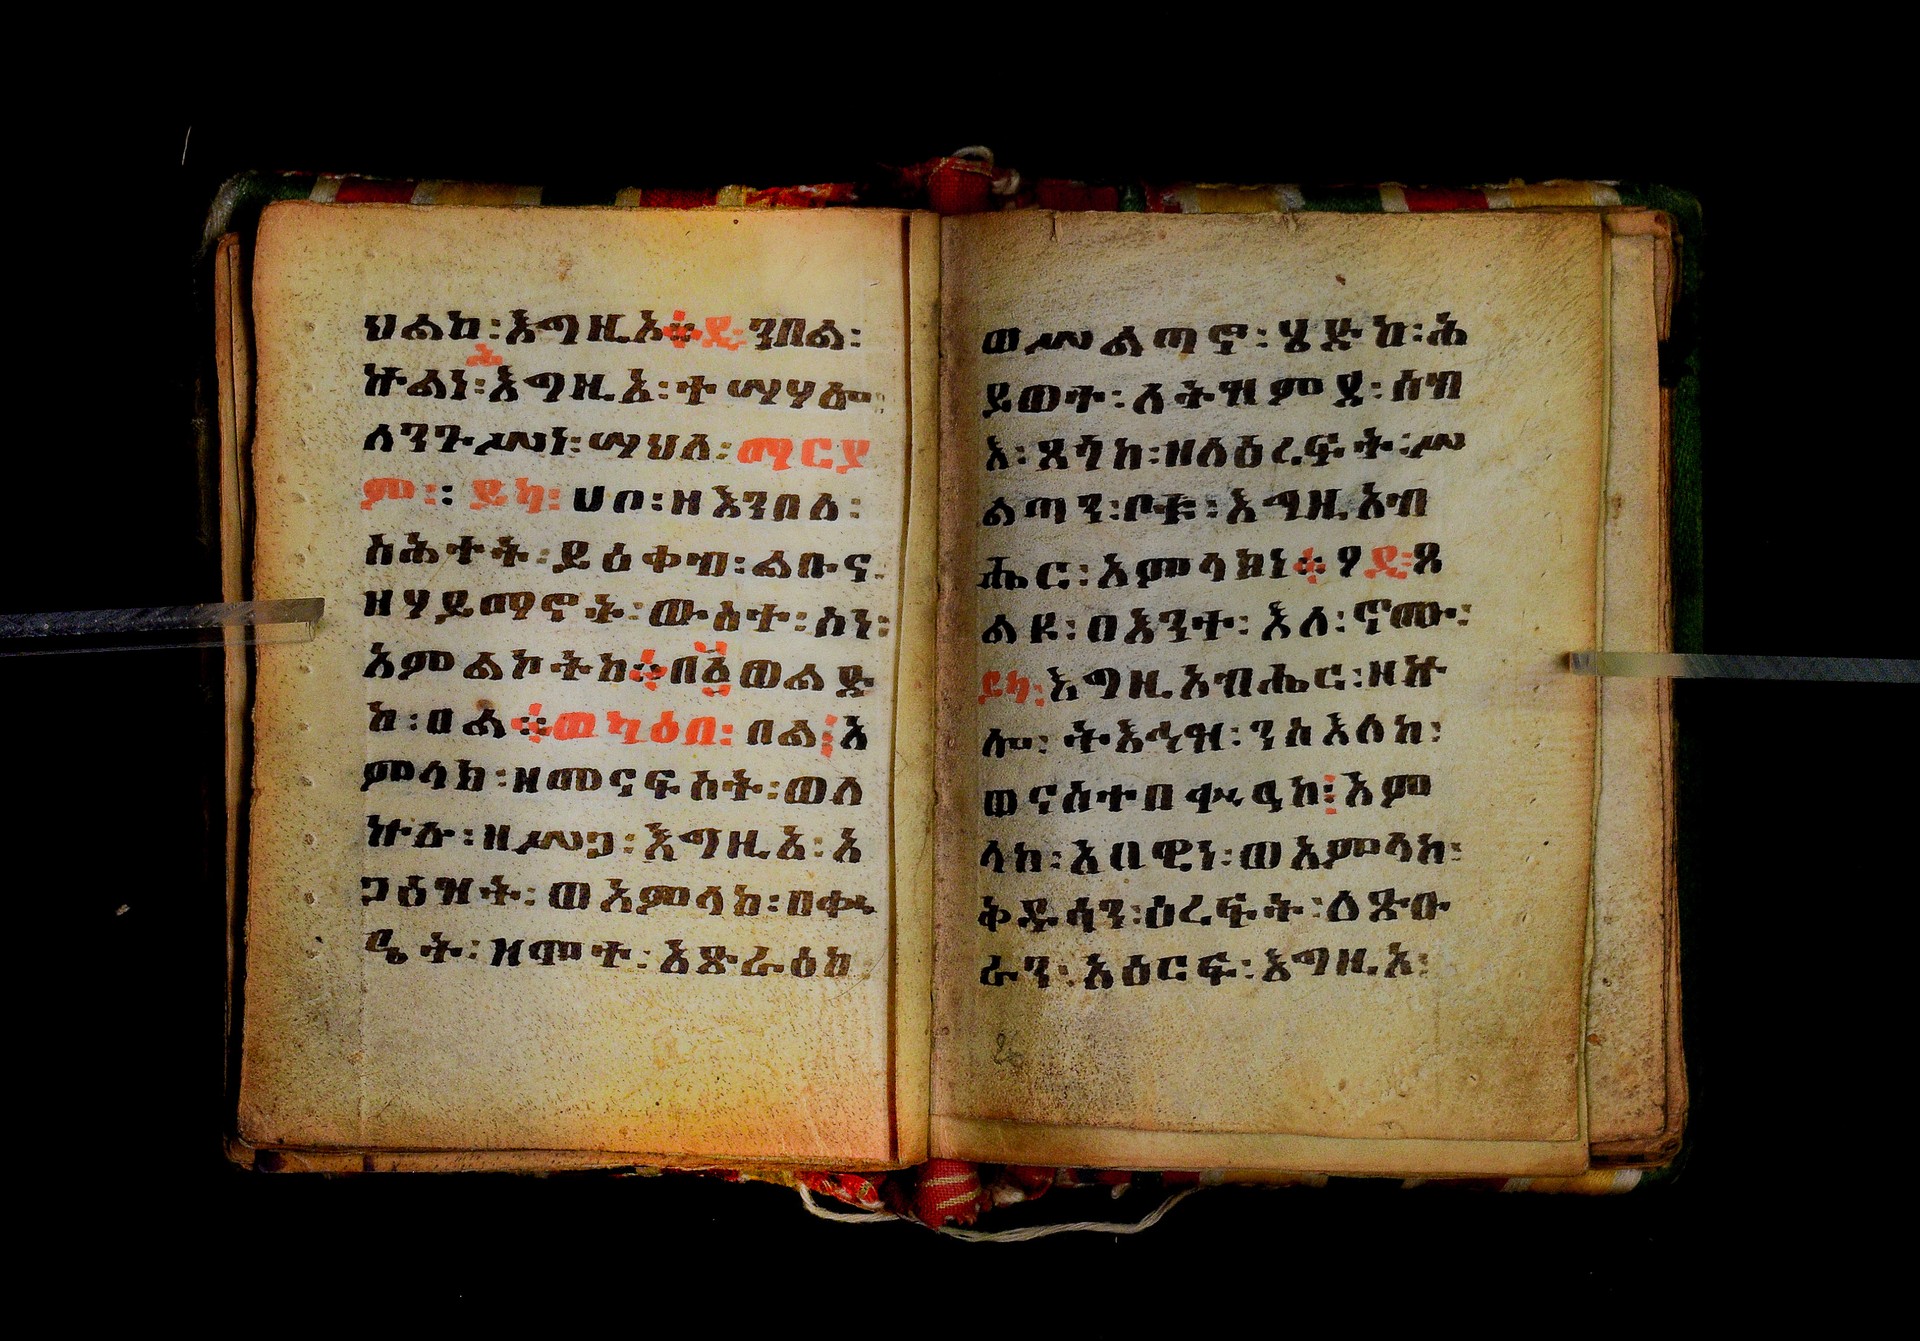 ህልከ፡እግዚአ።ይ፡ንበል፡
ኵልነ፡እግዚኦ፡ተሣሃሎ፡
ለንጉሥነ፡ሣህለ፡ማርያ
ም፡፡ይካ፡ሀቦ፡ዘእንበለ፡
ስሕተት፡ይዕቀብ፡ልቡና፡
ዘሃይማኖት፡ውስተ፡ስነ፡
አምልኮትከ።በ፩ወልድ
ከ፡በል።ወካዕበ፡በል፤አ
ምላክ፡ዘመናፍስት፡ወለ
ኵሉ፡ዘሥጋ፡እግዚኦ፡እ
ግዕዝት፡ወአምላክ፡በቀኍ
ዔት፡ዘሞተ፡አጽራዕከ፡
ወሥልጣኖ፡ሄድከ፡ሕ
ይወተ፡ለትዝምዷ፡ሰብ
እ፡ጸላከ፡ዘለዕረፍት፡ሥ
ልጣን፡ቦቱ፡እግዚአብ
ሔር፡አምላክነ።ሃዲ፡ጸ
ልዩ፡በእንተ፡እለ፡ኖሙ፡
ይካ፡እግዚአብሔር፡ዘኵ
ሎ፡ትእኅዝ፡ንስእለከ፡
ወናስተበቍዓከ፤አም
ላከ፡አበዊነ፡ወአምላከ፡
ቅዱሳን፡ዕረፍት፡ለጽቡ
ራን፡አዕርፍ፡እግዚኦ፡